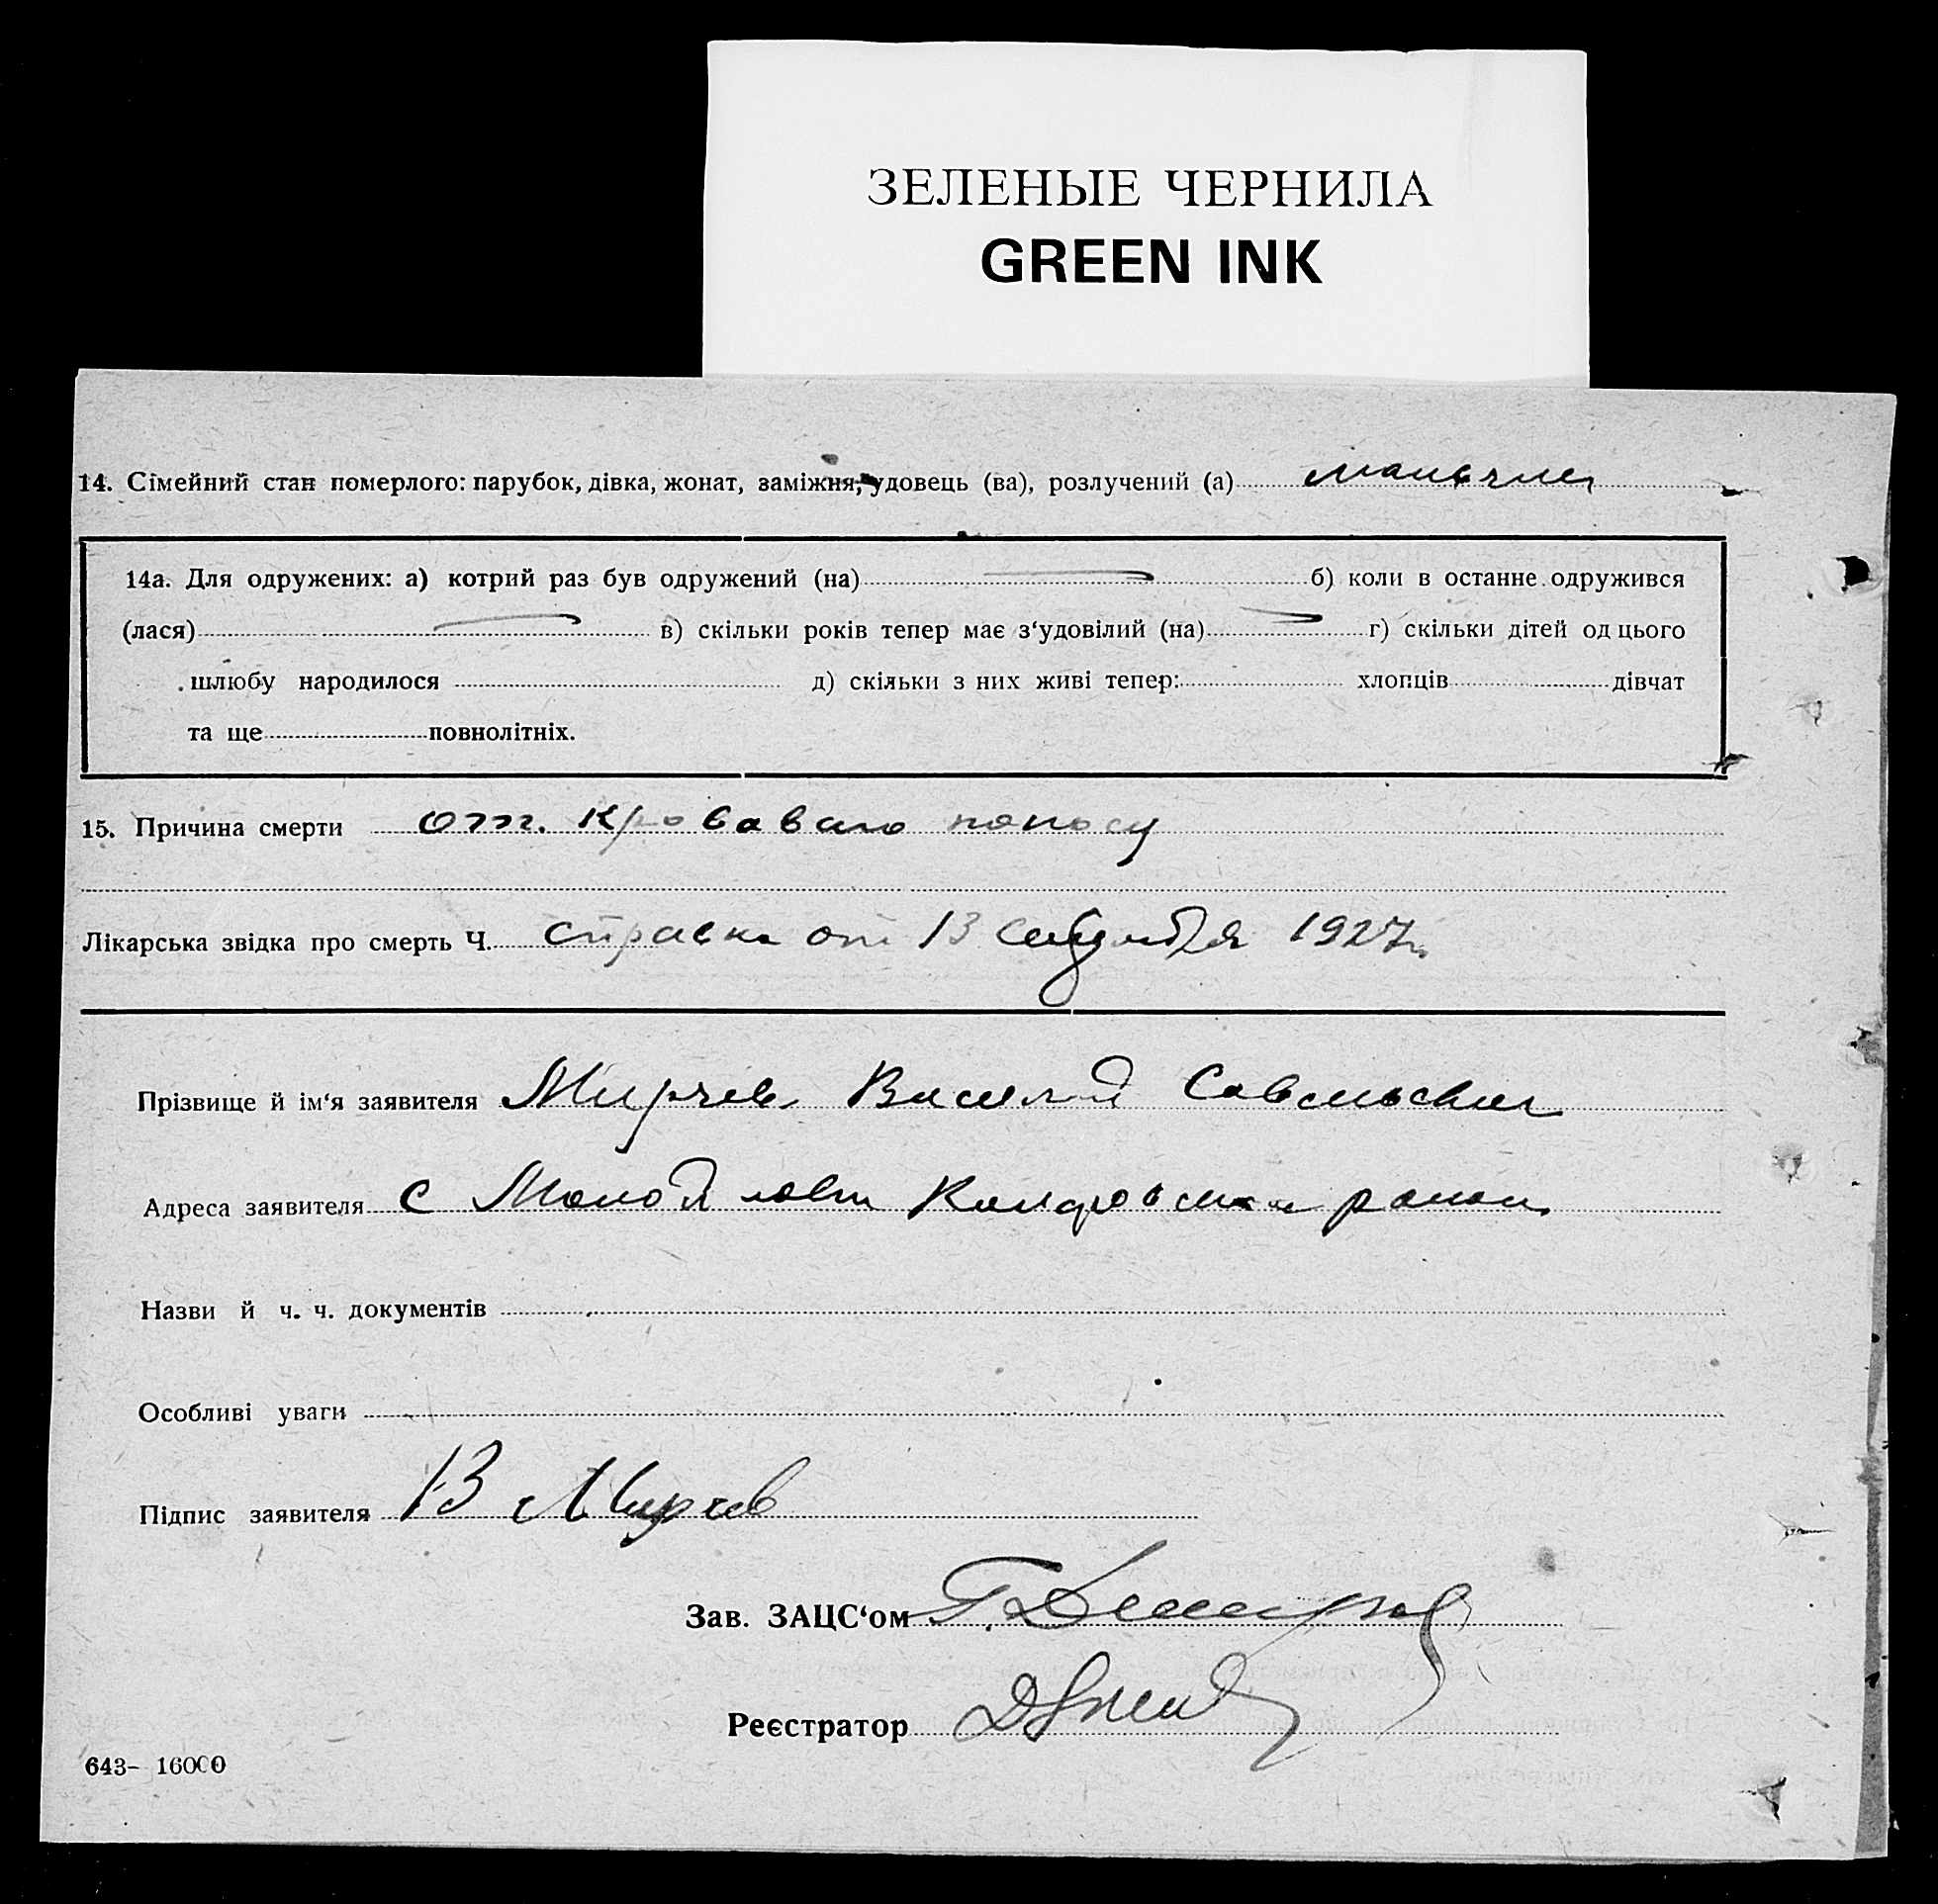 ЗЕЛЕНЫЕ ЧЕРНИЛА
GREEN INK
14. Сімейний стан померлого: парубок, дівка, жонат, заміжня, удовець (ва), розлучений (а)
14а. Для одружених: а) котрий раз був одружений (на) б) коли в останне одружився
(лася) в) скільки років тепер має з‘удовілий (на) г) скільки дітей од цього
шлюбу народилося д) скільки з них живі тепер: хлопців дівчат
та ще повнолітніх.
15. Причина смерти от кроваваго поносу
Лікарська звідка про смерть Ч. справка от 13 1927 г.
Прізвище й ім‘я заявителя Мирчев Василий Савельевич
Адреса заявителя с район
Назви й ч. ч. документів
Особливі уваги
Підпис заявителя В Мирчев
Зав. ЗАЦС‘ом
Реєстратор
643– 16000